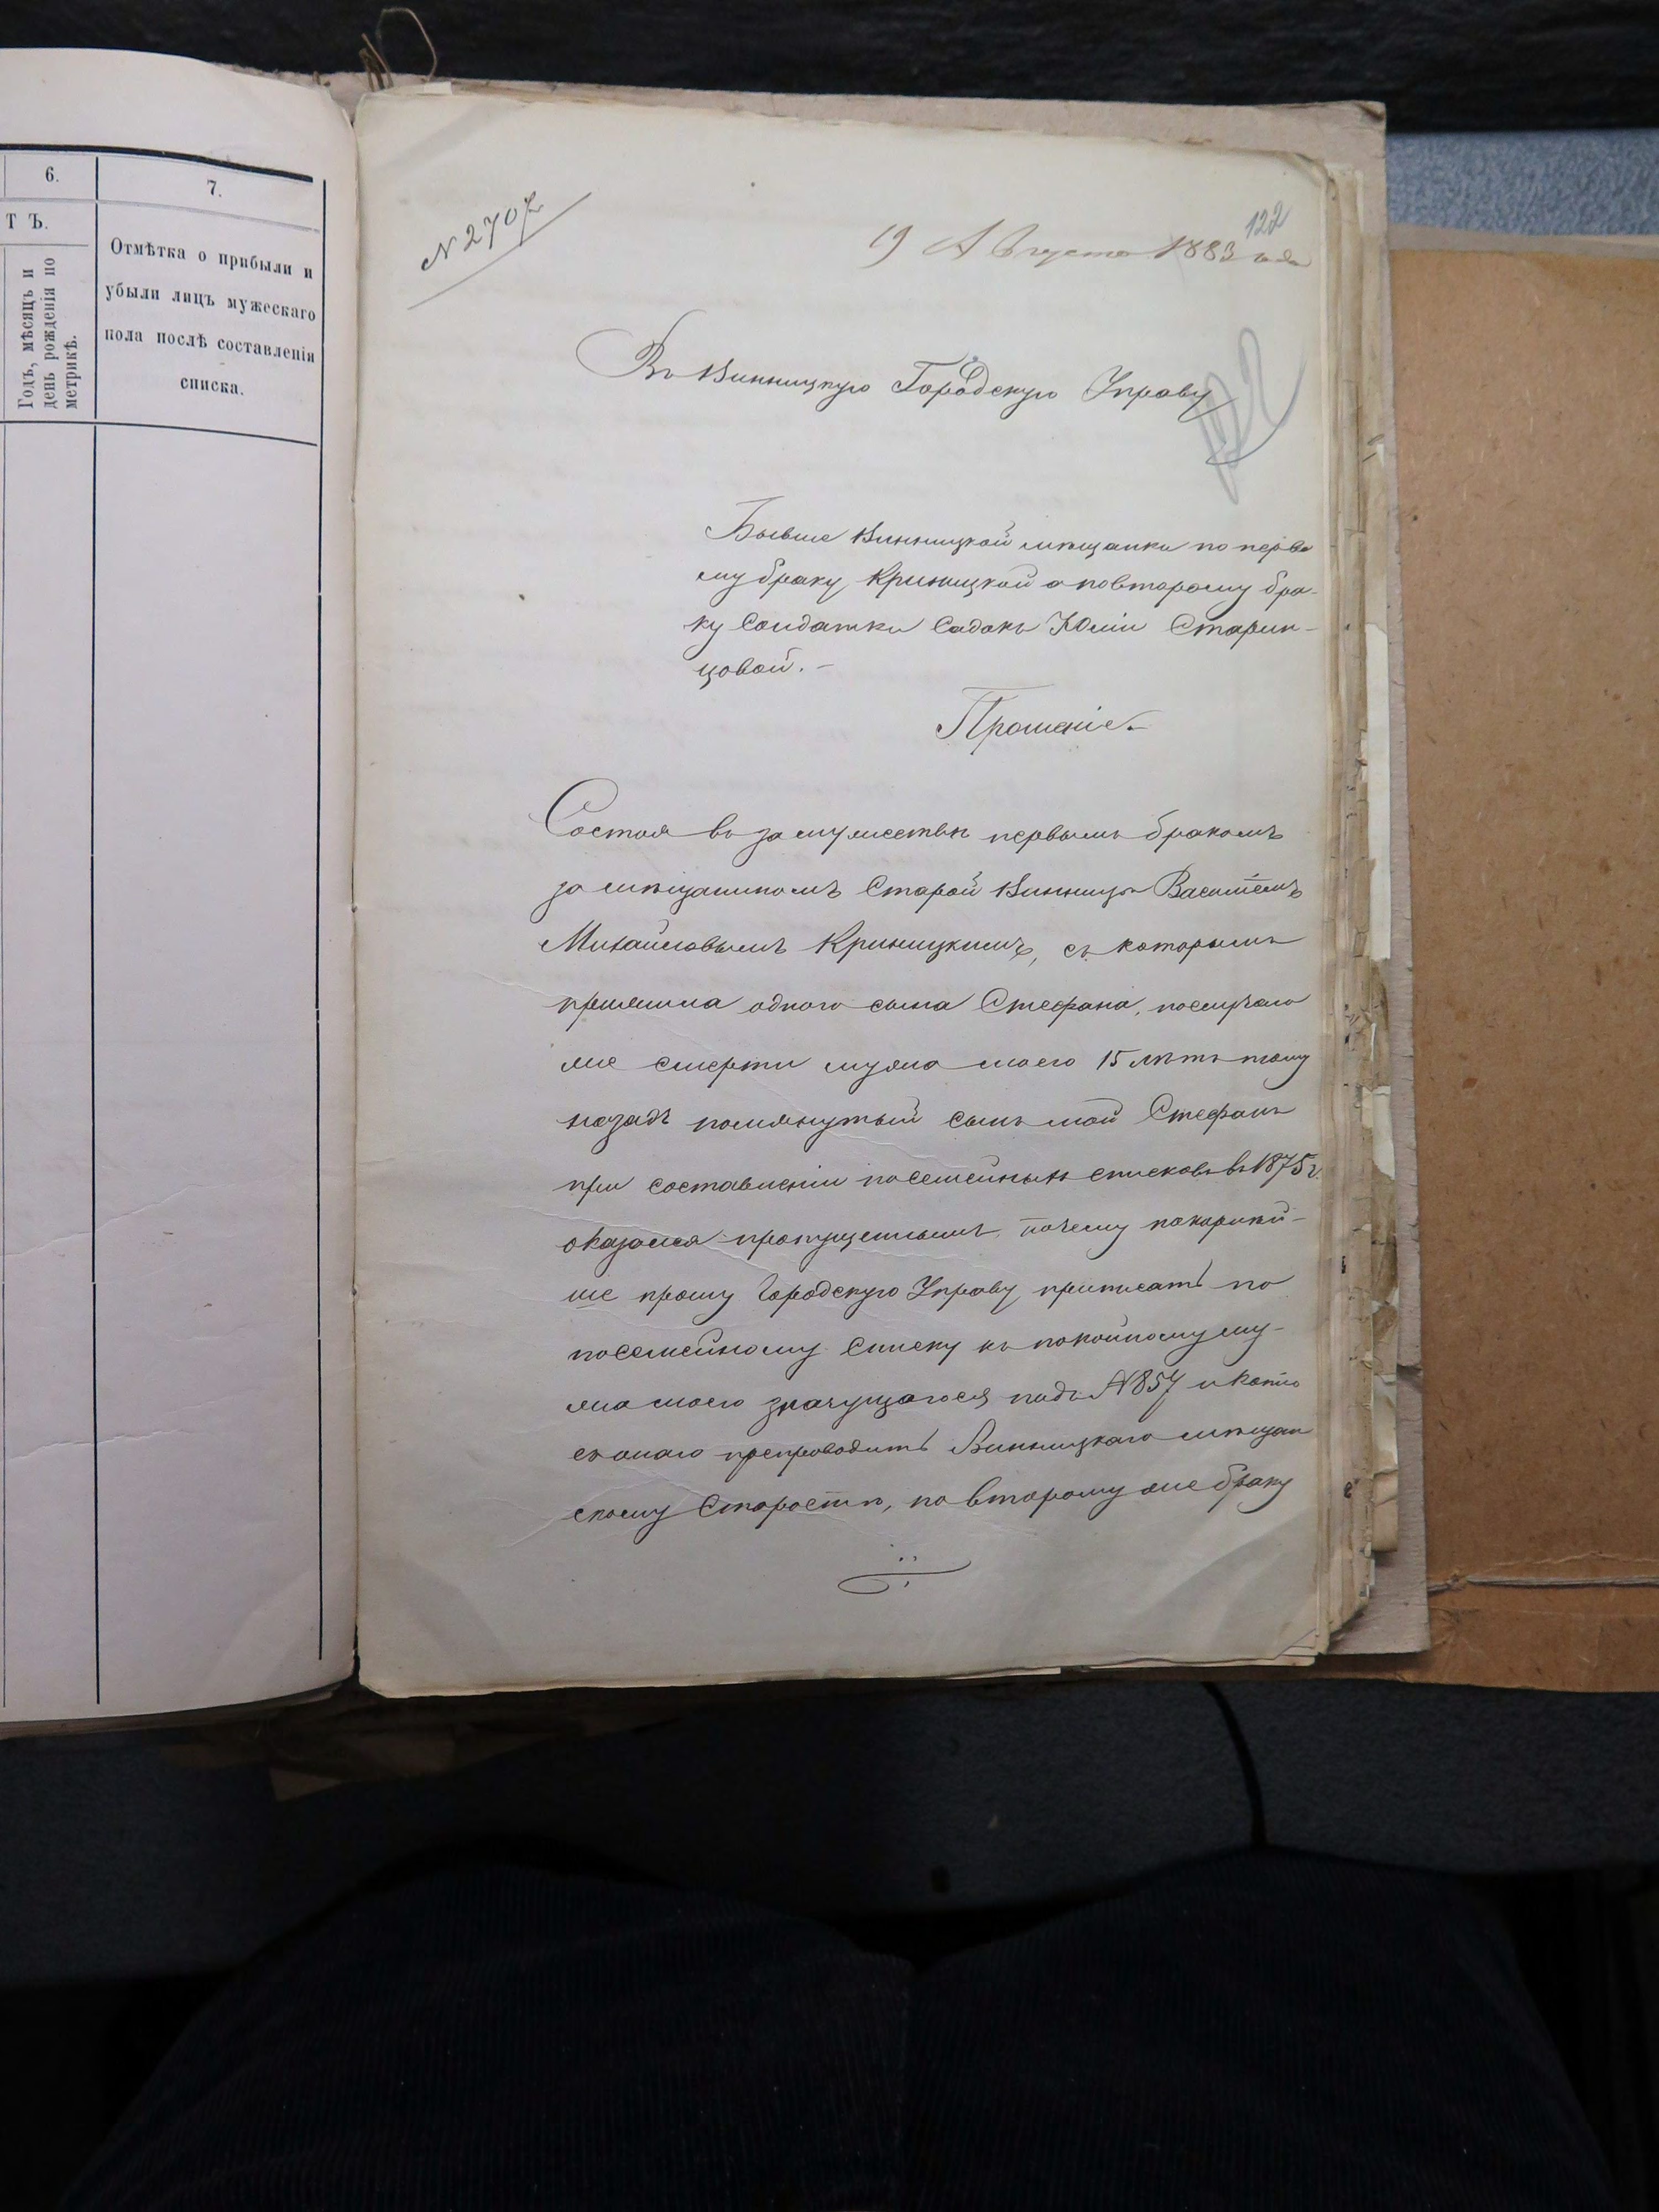 6.
7.
Т Ъ.
Годъ, мѣсяцъ и
день рожденія по
метрикѣ.
Отмѣтка о прибыли и
убыли лицъ мужескаго
пола послѣ составленія
списка.
N 2707
122
19 Августа 1883 года
Въ Винницкую Городскую Управу
122
Бывше Винницкой мѣщанки по перво
му браку Криницкой а по второму бра-
ку Солдатки Садокъ Юліи Старин-
цовой. –
Прошеніе. –
Состоя въ замужествѣ первымъ бракомъ
за мѣщаниномъ Старой Винницы Василіемъ
Михайловымъ Криницкимъ, съ которымъ
прижила одного сына Стефана, послучаю
же смерти мужа моего 15 лѣтъ тому
назадъ помянутый сынъ мой Стефанъ
при составленіи посемейныхъ списковъ въ 1875 г.
оказался пропущеннымъ, почему покорнѣй-
ше прошу Городскую Управу приписать по
посемейному списку къ покойному му-
жа моего значущагося подъ N 857 и копію
съ онаго препроводить Винницкаго мѣщан
скому Старостѣ, по второму же браку